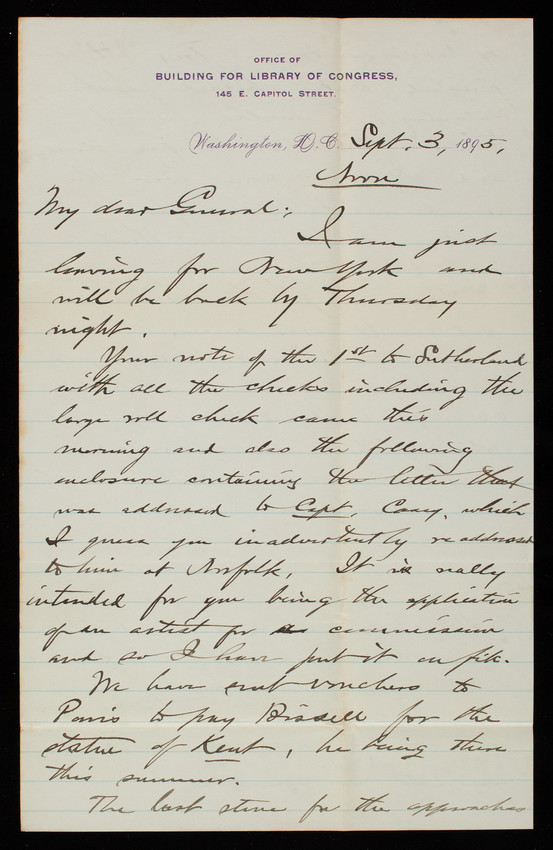 OFFICE OF
BUILDING FOR LIBRARY OF CONGRESS,
145 E. CAPITOL STREET.
Washington, D.C. Sept. 3, 1895,
Noon
My dear General:,
I am just
leaving for New York and
will be back by Thursday
night.
Your note of the 1st to Sutherland
with all the checks including the
large roll check came this
morning and also the following
enclosure containing the letter that
was addressed to Capt. Casey, which
I guess you inadvertently readdressed
to him at Norfolk. It is really
intended for you being the application
of an artist for a commission
and so I have put it on file.
We have sent vouchers to
Paris to pay Bissell for the
statue of Kent, he being there
this summer.
The last stone for the approaches